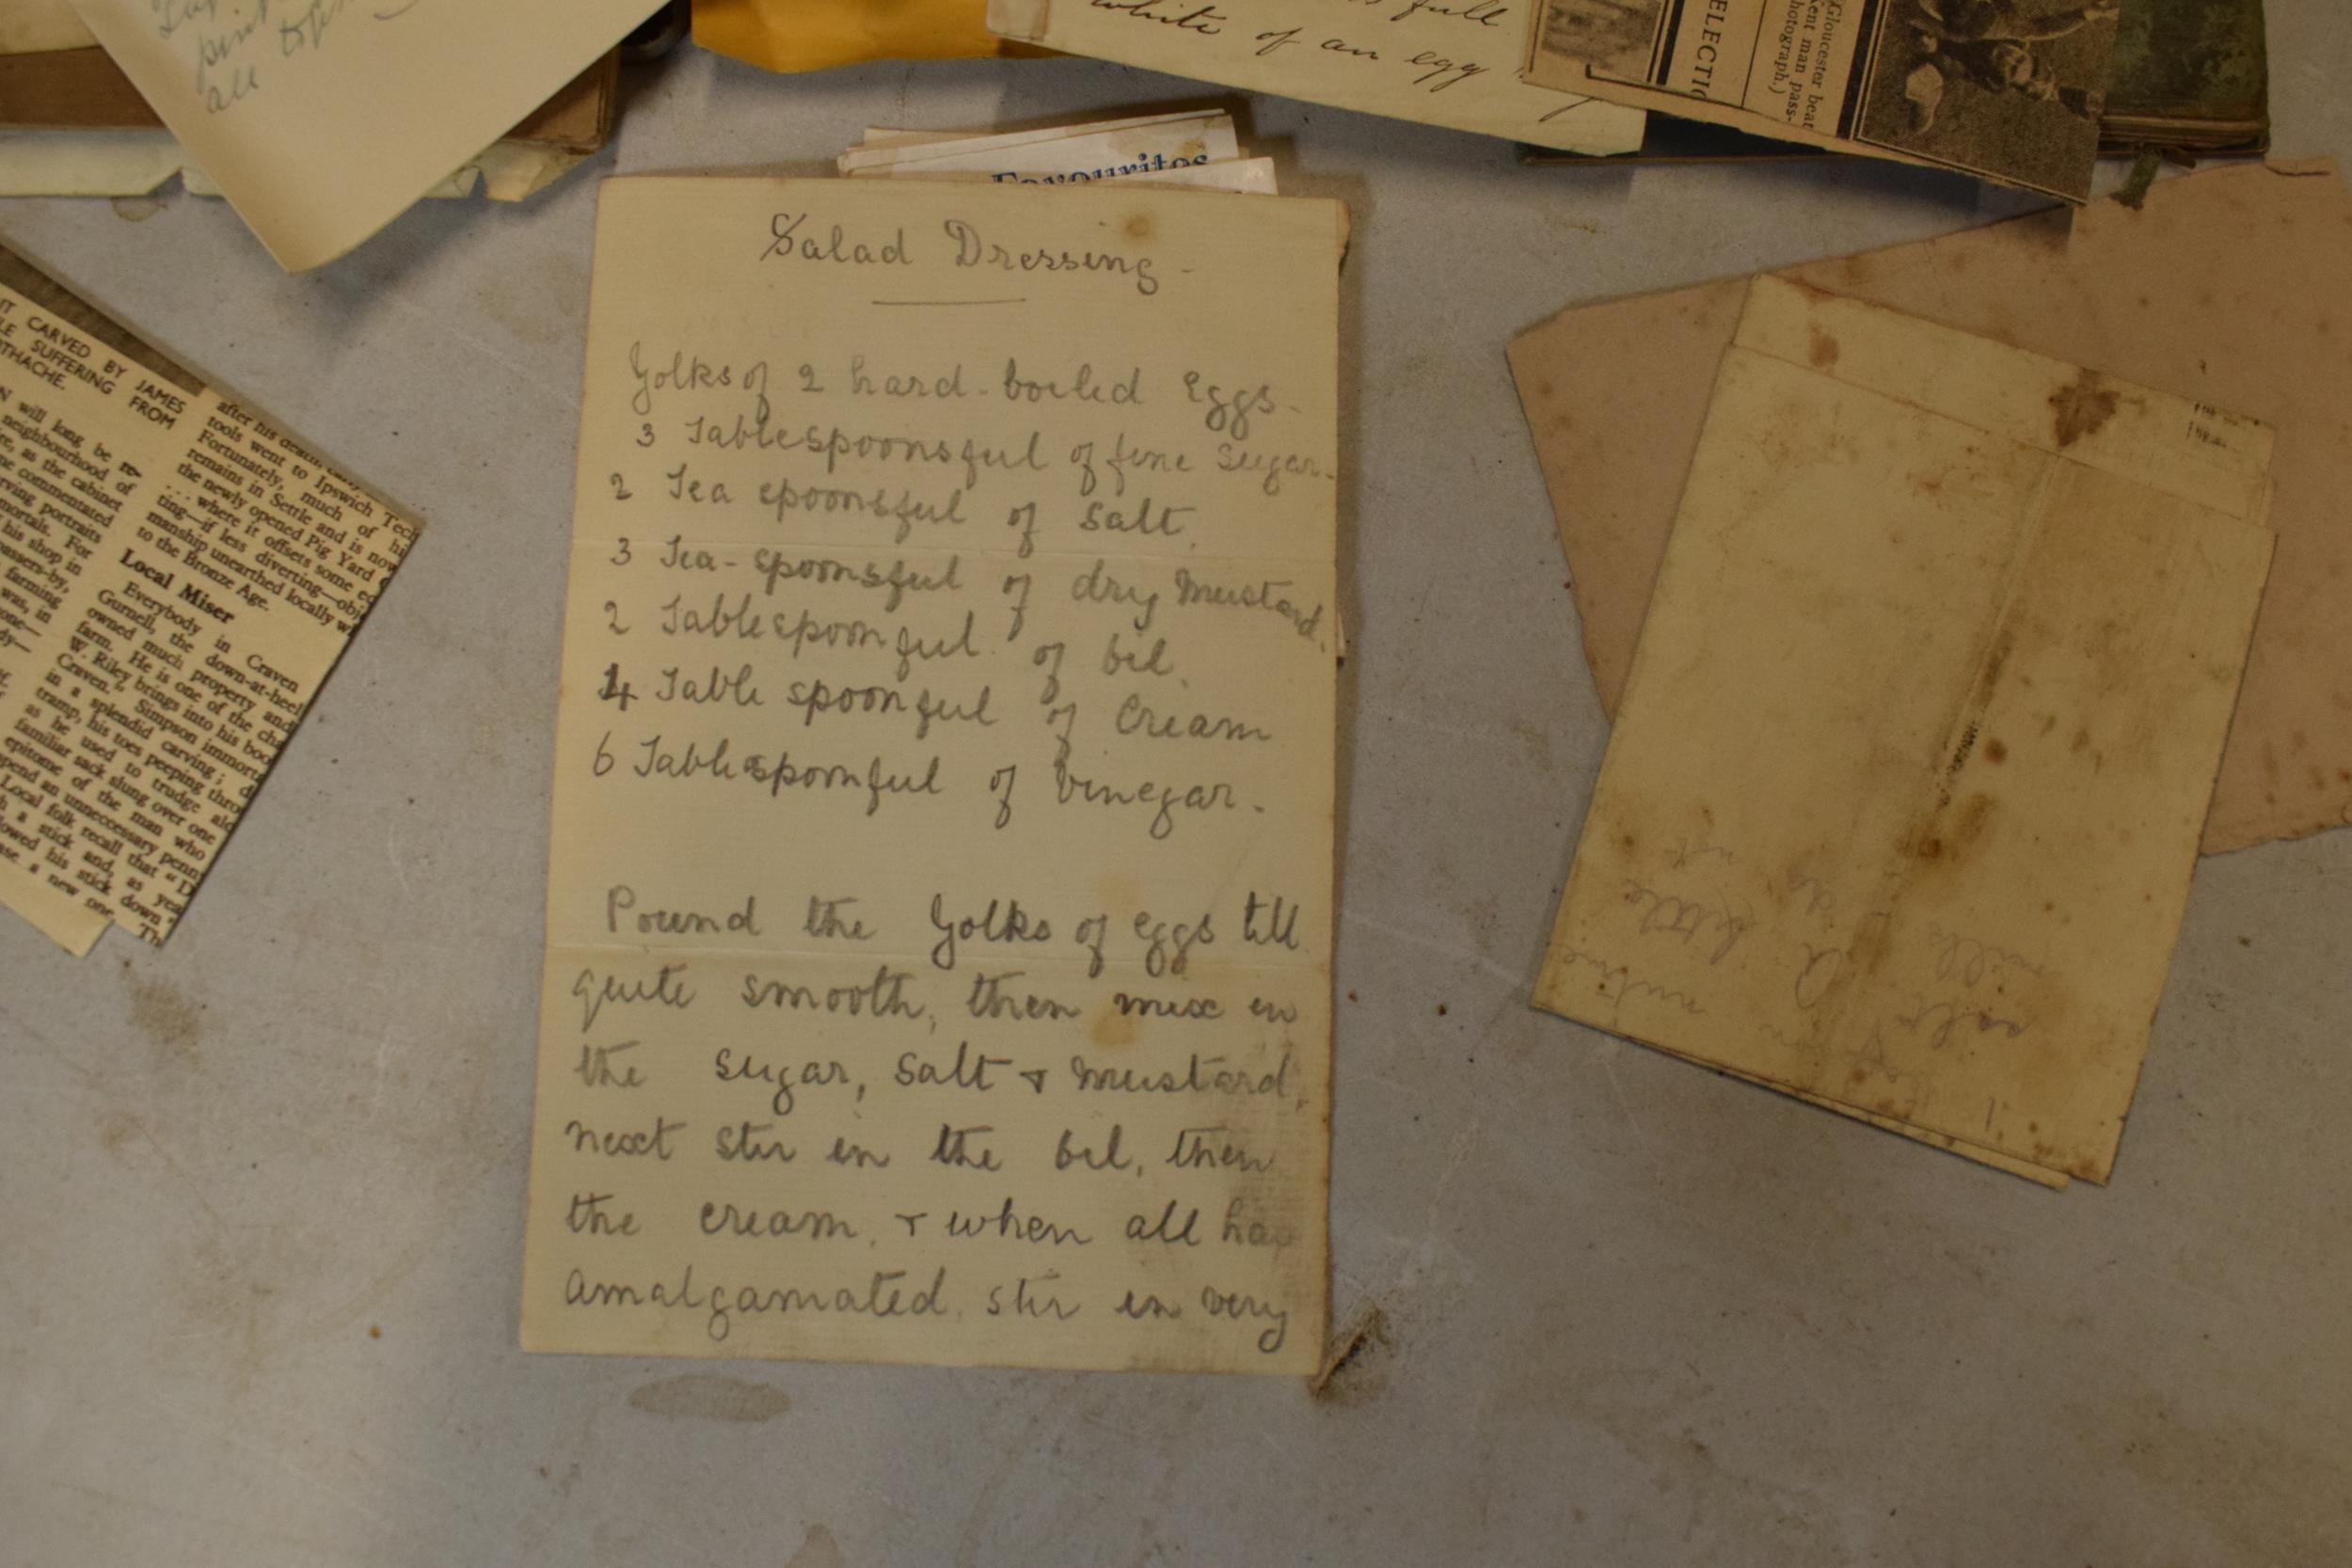 pint
all
full
white of an egg
ELECTIO
Gloucester beat
Kent man pass-
hotograph.)
Favourites
Salad Dressing -
Yolks of 2 hard-boiled Eggs -
3 Tablespoonsful of fine Sugar -
2 Tea spoonsful of Salt.
3 Tea-spoonsful of dry Mustard.
2 Tablespoonful of Oil.
4 Table spoonful of Cream
6 Tablespoonful of Vinegar.
Pound the Yolks of Eggs till
quite smooth, then mix in
the Sugar, Salt & Mustard,
next stir in the Oil, then
the cream, & when all has
amalgamated, stir in very
IT CARVED BY JAMES
LE SUFFERING FROM
OTHACHE.
N will long be re-
neighbourhood of
re, as the cabinet
ne commentated
rving portraits
mortals. For
his shop in
passers-by,
farming
was, in
one—
dy—
after his death,
tools went to Ipswich Tech
Fortunately, much of hi
remains in Settle and is now
the newly opened Pig Yard
. . . where it offsets some
ting—if less diverting—obj
manship unearthed locally wi
to the Bronze Age.
Local Miser
Everybody in Craven
Gurnell, the down-at-heel
owned much property and
farm. He is one of the cha
W. Riley brings into his boo
Craven." Simpson immort
in a splendid carving; d
tramp, his toes peeping thro
as he used to trudge alo
familiar sack slung over one
epitome of the man who
pend an unnecessary penn
Local folk recall that "D
h a stick and, as yea
lowed his stick down"
ase a new one
Th
little
salt